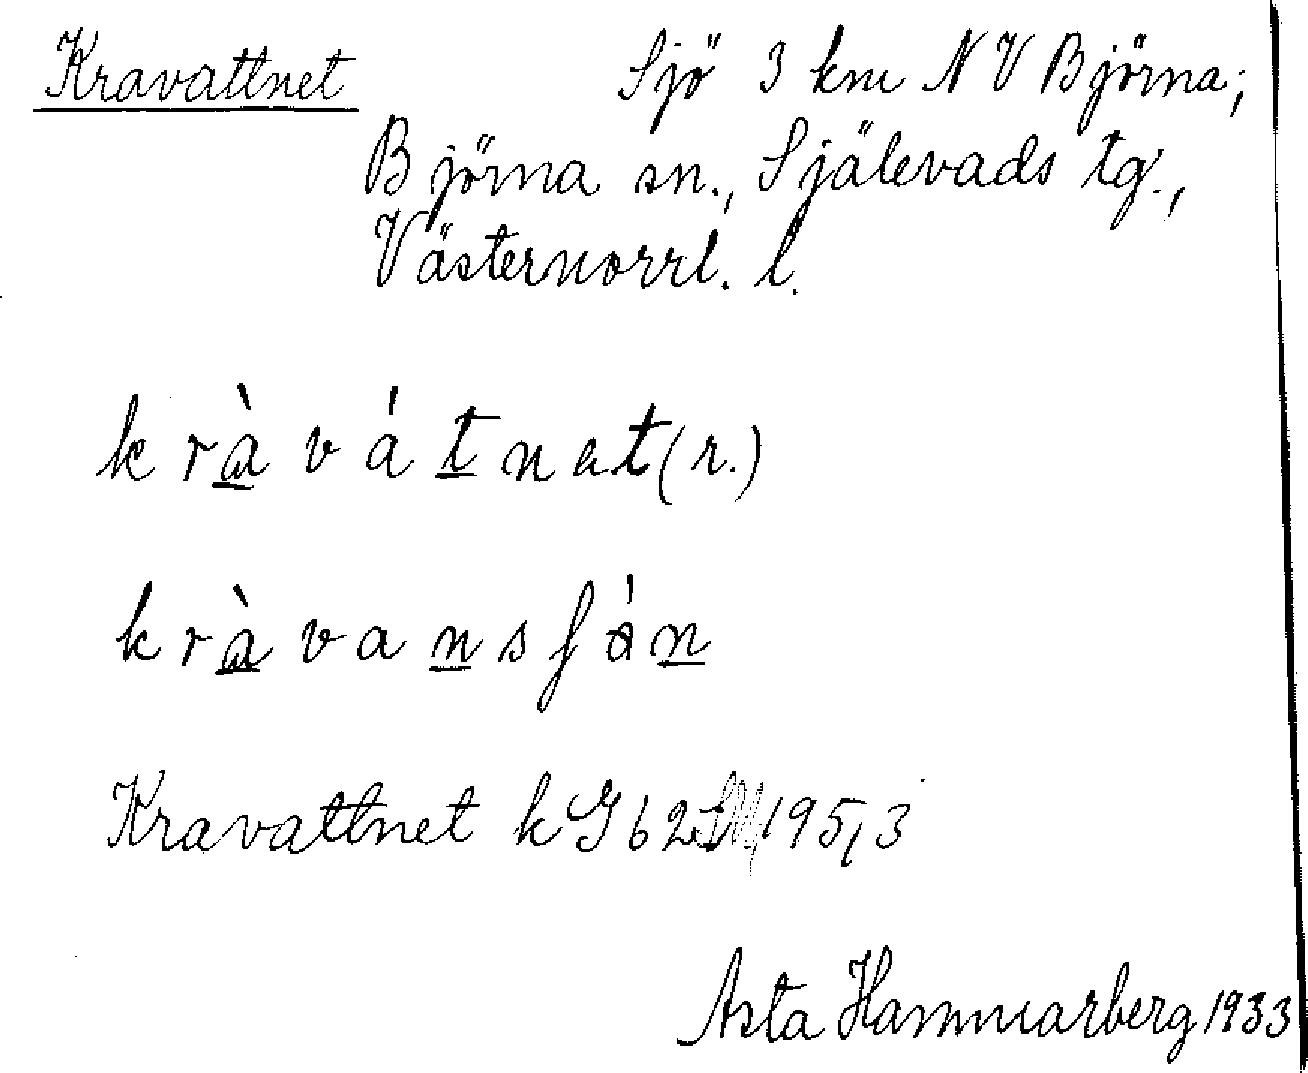 Kravattnet Sjö 3 km NV Björna;
Björna sn., Själevads tg.,
Västernorrl. l.
kràvátnat (r.)
kràvansfán
Kravattnet kG62 195,3
Asta Hammarberg 1933